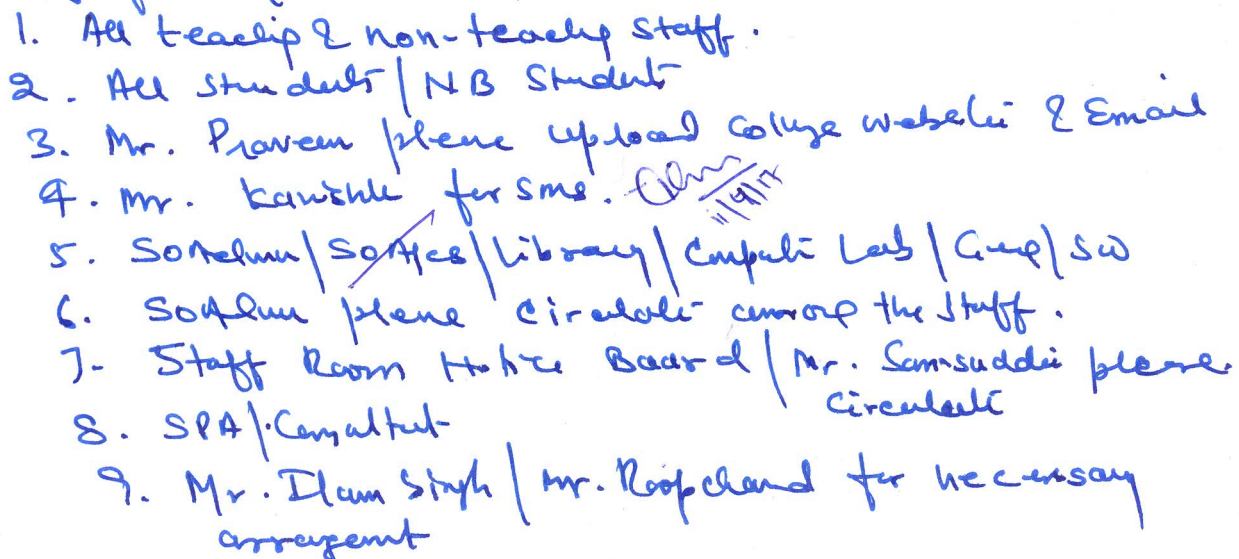 1. All teaching & non-teaching staff.
2. All Students / NB Students
3. Mr. Praveen please upload college website & Email
4. Mr. Kanishk for sms.
11/9/17
5. / / Library / Computer Lab / / SO
6. please circulate among the staff.
7- Staff Room Notice Board / Mr. Samsuddin please
circulate
8. SPA / Consultant
9. Mr. Ilam Singh / Mr. Roopchand for necessary
arrangement